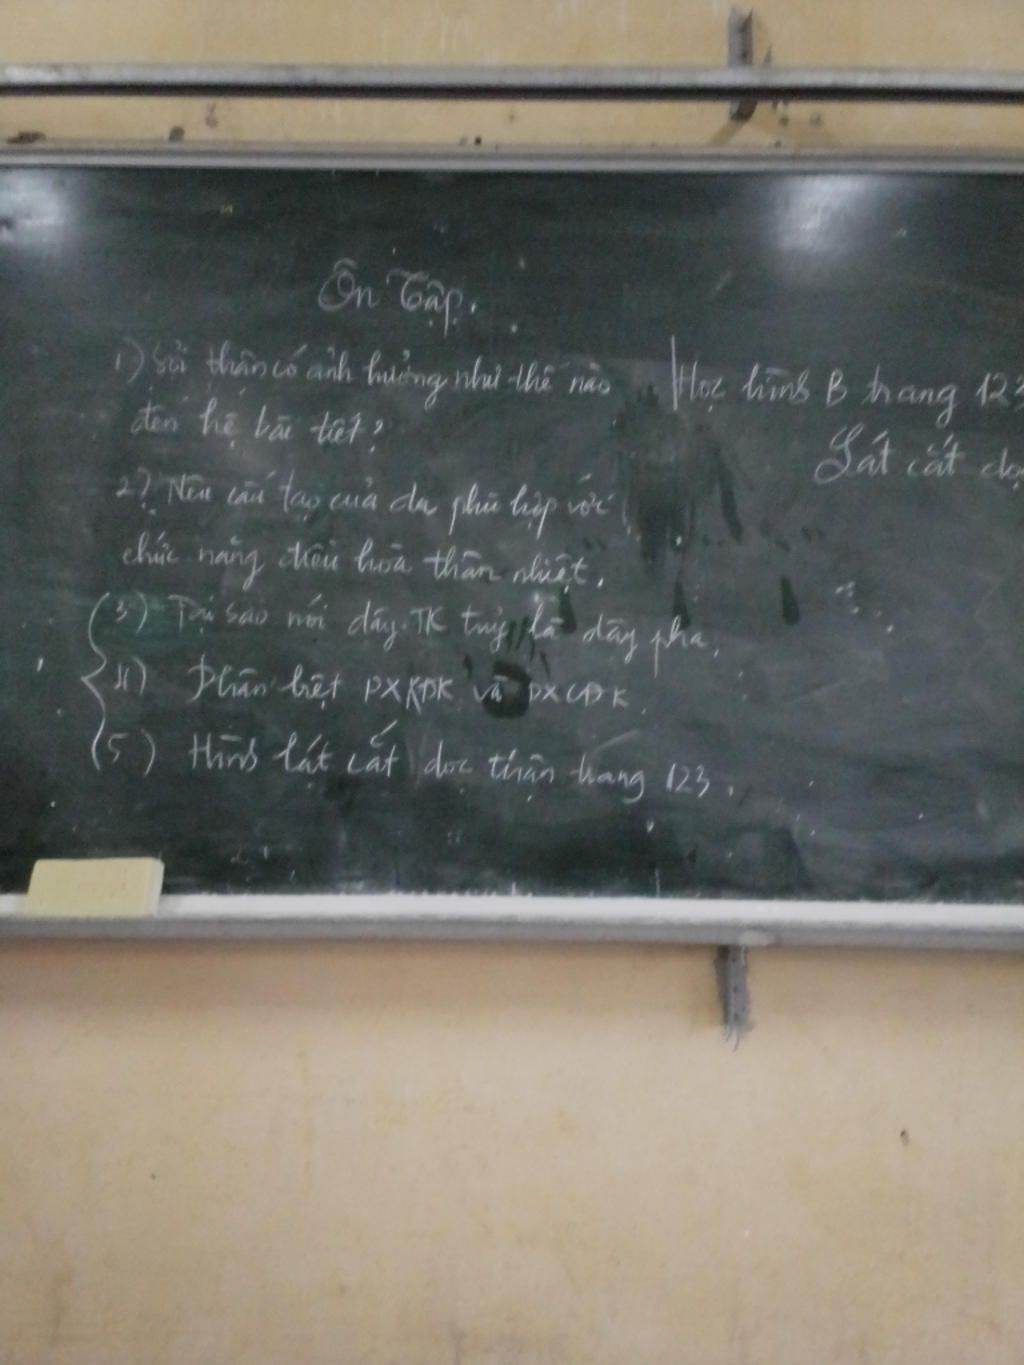 Ôn Tập.
1) Sỏi thận có ảnh hưởng như thế nào
đến hệ bài tiết?
2? Nêu cấu tạo của da phù hợp với
chức năng điều hoà thân nhiệt.
3) Tại sao nói dây TK tuỷ là dây pha.
4) Phân biệt PXKĐK và PXCĐK.
5) Hình lát cắt dọc thận trang 123.
Học hình B trang 123
Lát cắt dọ